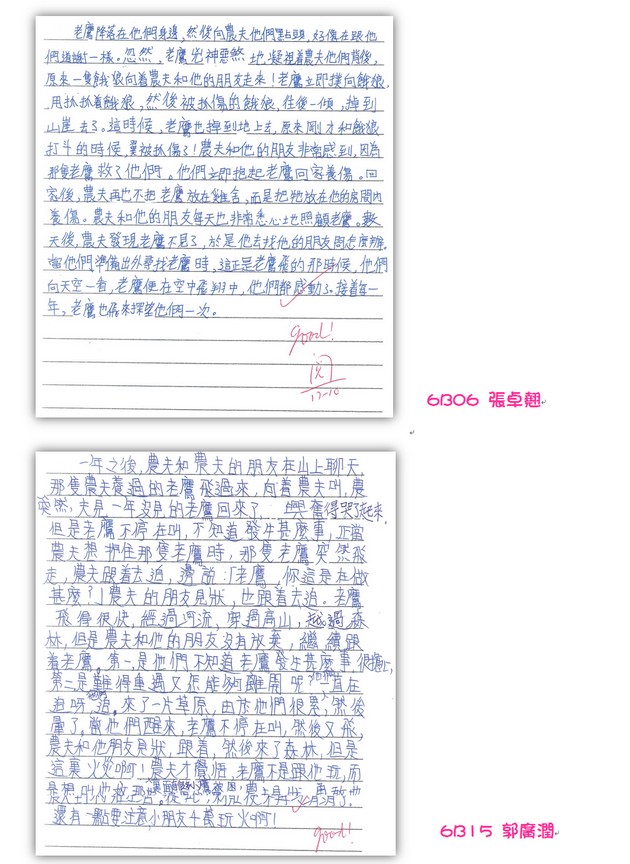 老鷹降落在他們身邊,然後向農夫他們點頭,好像在跟他
們道謝一樣。忽然,老鷹兇神惡煞地凝視着農夫他們背後,
原來一隻餓狼向着農夫和他的朋友走來!老鷹立即撲向餓狼,
用抓抓着餓狼,然後被抓傷的餓狼,往後一傾,掉到
山崖去了。這時候,老鷹也掉到地上去,原來剛才和餓狼
打斗的時候,翼被抓傷了!農夫和他的朋友非常感到,因為
那隻老鷹救了他們。他們立即抱起老鷹回家養傷。回
家後,農夫再也不把老鷹放在雞舍,而是把牠放在他的房間內
養傷。農夫和他的朋友每天也非常悉心地照顧老鷹。數
天後,農夫發現老鷹不見了,於是他去找他的朋友問怎麼辦。
當他們準備出外尋找老鷹時,這正是老鷹飛的那時候,他們
向天空一看,老鷹便在空中飛翔中,他們都感動了。接着每一
年,老鷹也飛來探望他們一次。
good!
閱
17-10
6B06 張卓翹
一年之後,農夫和農夫的朋友在山上聊天,
那隻農夫養過的老鷹飛過來,向着農夫叫,農
夫見一年沒見的老鷹回來了 突然,興奮得哭了起來,
但是老鷹不停在叫,不知道發生甚麼事,正當
農夫想抱住那隻老鷹時,那隻老鷹突然飛
走,農夫跟着去追,邊說:「老鷹,你這是在做
甚麼?」農夫的朋友見狀,也跟着去追。老鷹
飛得很快,經過河流,穿過高山,越過森
林,但是農夫和他的朋友沒有放棄,繼續跟
着老鷹。第一是他們不知道老鷹發生甚麼事,很擔心,
第二是難得重遇又怎能夠離開呢?直在
追呀追,來了一片草原,由於他們很累,然後
暈了。當他們醒來,老鷹不停在叫,然後又飛,
農夫和他朋友見狀,跟着,然後來了森林,但是
這裏火災啊!農夫才覺悟,老鷹不是跟他玩,而
是想叫他救那
還有一點要注意,小朋友千萬玩火啊!
good!
6B15 郭廣潤